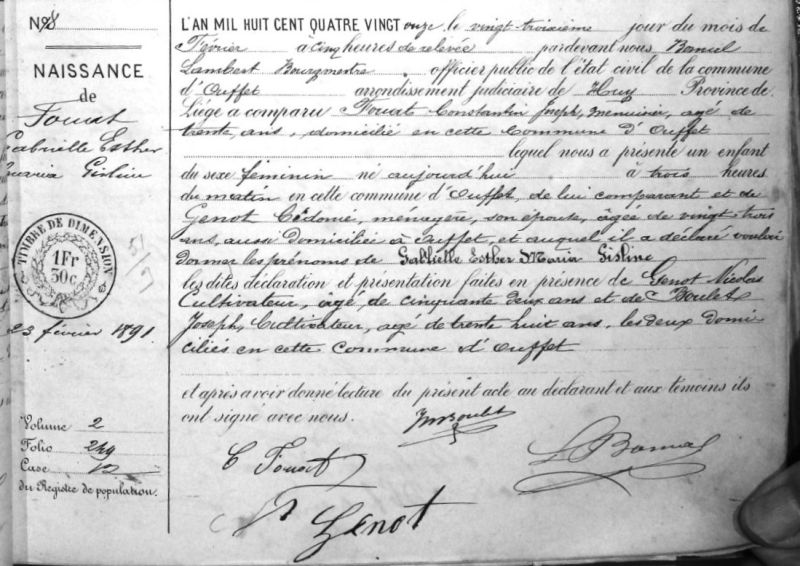 N° 8
NAISSANCE
de
Fouat
Gabrielle Esther
Maria Gisline
TIMBRE DE DIMENSION
1Fr
30c
23 février 1891
Volume 2
Folio 249
Case 12
du Registre de population.
L'AN MIL HUIT CENT QUATRE VINGT onze le vingt-troisième jour du mois de
Février à cinq heures de relevée pardevant nous
Lambert Bourgmestre, officier public de l'état civil de la commune
d'Ouffet arrondissement judiciaire de Huy Province de
Liége a comparu Fouat Constantin Joseph, menuisier, agé de
trente, ans, domicilié en cette Commune d'Ouffet
lequel nous a présenté un enfant
du sexe féminin né aujourd'hui à trois heures
du matin en cette commune d'Ouffet, de lui comparant et de
Genot Cédonie, menagère, son épouse, agée de vingt trois
ans, aussi domiciliée à Ouffet, et auquel il a déclaré vouloir
donner les prénoms de Gabrielle Esther Maria Gisline
les dites déclaration et présentation faites en présence de Genot Nicolas
Cultivateur, agé, de cinquante deux ans et de Boulet
Joseph, Cultivateur, agé de trente huit ans, les deux domi
ciliés en cette Commune d'Ouffet
et après avoir donné lecture du présent acte au déclarant et aux témoins ils
ont signé avec nous.
Boulet
C Fouat
L Bamal
N Genot